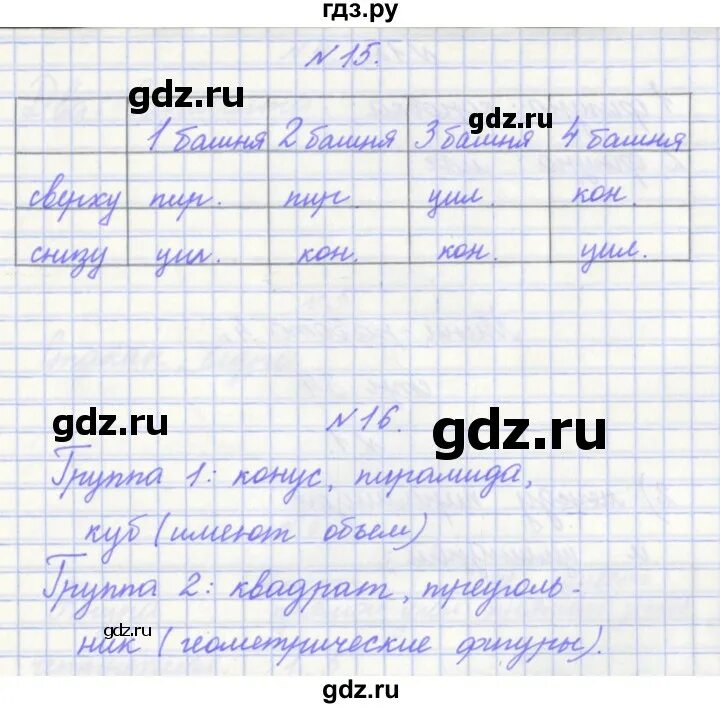 гдз.ру
№15.
gdz.ru gdz.ru
1 башня 2 башня 3 башня 4 башня
сверху пир. пир. цил. кон.
снизу цил. кон. кон. цил.
gdz.ru
№16.
gdz.ru
Группа 1: конус, пирамида,
куб (имеют объем)
Группа 2: квадрат, треуголь-
gdz.ru
ник (геометрические фигуры).
gdz.ru